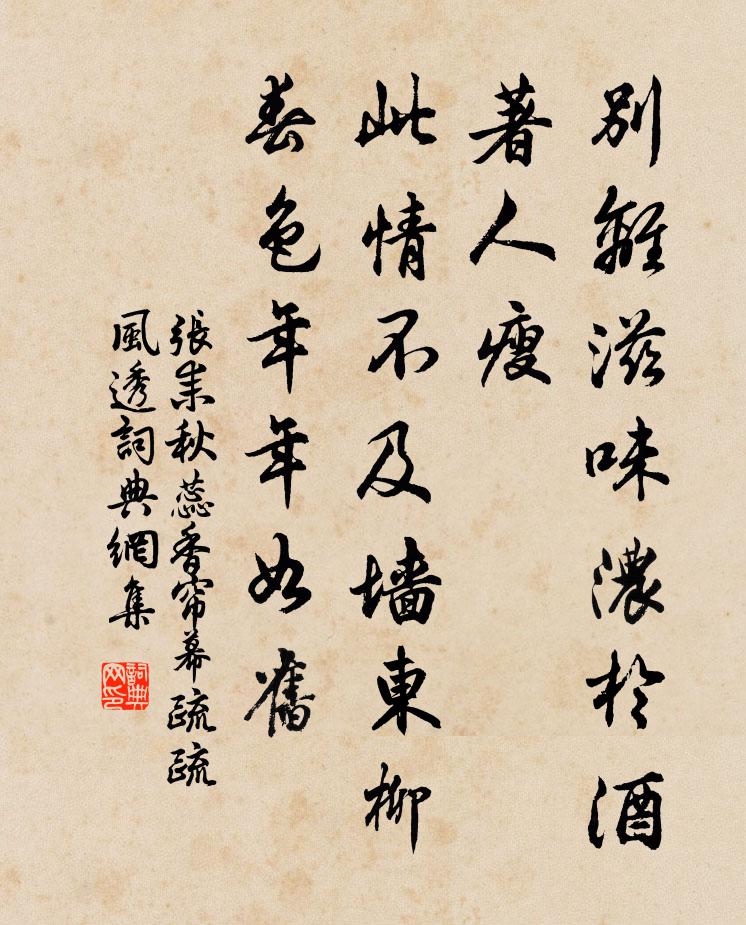 別離滋味濃於酒
著人瘦
此情不及墻東柳
春色年年如舊
張耒秋蕊香帘幕疏疏
風透詞典網集
詞典
网印